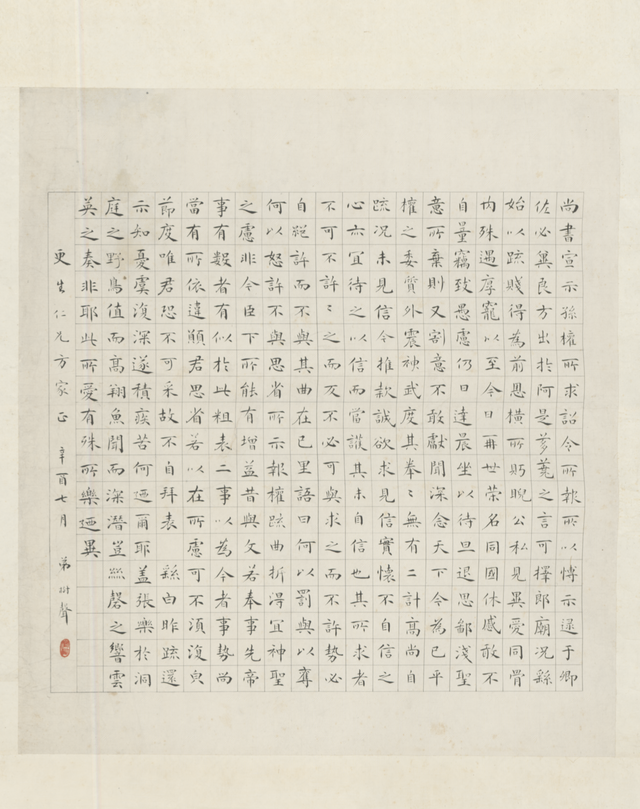 尚書宣示孫權所求詔令所報所以博示逮于卿
佐必冀良方出於阿是芻蕘之言可擇郎廟況繇
始以疏賤得為前恩橫所眄睨公私見異愛同骨
肉殊遇厚寵以至今日再世榮名同國休慼敢不
自量竊致愚慮仍日達晨坐以待旦退思鄙淺聖
意所棄則又割意不敢獻聞深念天下今為已平
權之委質外震神武度其拳〻無有二計高尚自
疏況未見信今推款誠欲求見信實懷不自信之
心亦宜待之以信而當護其未自信也其所求者
不可不許〻之而反不必可與求之而不許勢必
自絕許而不與其曲在己里語曰何以罰與以奪
何以怒許不與思省所示報權疏曲折得宜神聖
之慮非今臣下所能有增益昔與文若奉事先帝
事有數者有似於此粗表二事以為今者事勢尚
當有所依違願君思省若以在所慮可不須復皃
節度唯君恐不可采故不自拜表 繇白昨疏還
示知憂虞復深遂積疾苦何迺爾耶蓋張樂於洞
庭之野鳥值而高翔魚聞而深潛豈絲磬之響雲
英之奏非耶此所愛有殊所樂迺異
更生仁兄方家正 辛酉七月 弟 聲